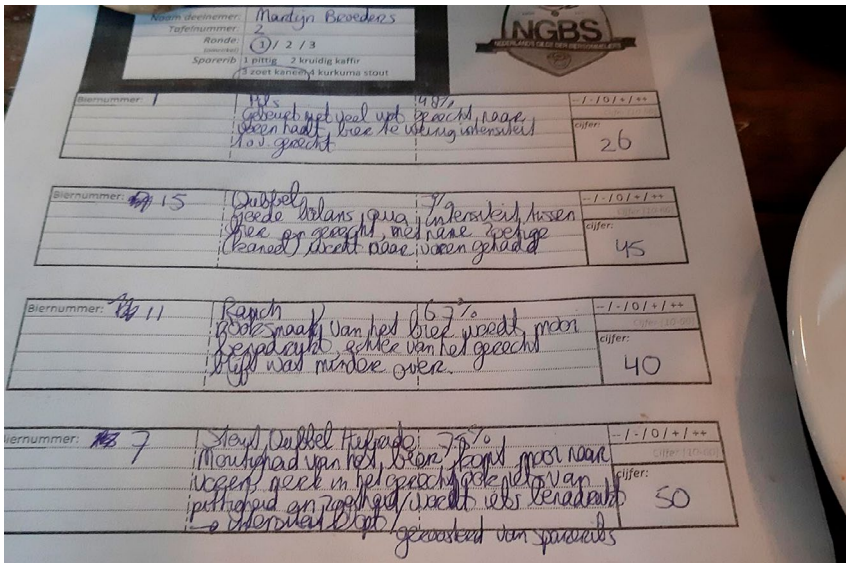 Naam deelnemer: Martijn Broeders
Tafelnummer: 2
Ronde: 1 / 2 / 3
Sparerib 1 pittig 2 kruidig kaffir
3 zoet kaneel 4 kurkuma stout
NGBS
NEDERLANDS GILDE DER BIERSOMMELIERS
Biernummer: 1 Pils 4,8% - - / - / 0 / + / ++
Gebeurt niet veel met gerecht, naar
voren haalt, bier te weinig intensiteit
t.o.v. gerecht
cijfer:
26
Biernummer: 15 Dubbel 7% - - / - / 0 / + / ++
Cijfer (10-50)
goede balans qua intensiteit tussen
bier en gerecht, met name zoetige
(kaneel) wordt naar voren gehaald
cijfer:
45
Biernummer: 11 Rauch 6,7% - - / - / 0 / + / ++
Cijfer (10-50)
Rooksmaak van het bier wordt mooi
benadrukt, echter van het gerecht
blijft wat minder over.
cijfer:
40
Biernummer: 7 Stout Dubbel - - / - / 0 / + / ++
Cijfer (10-50)
Moutigheid van het bier komt mooi naar
voren, zeker in het gerecht, ook iets van
pittigheid en zoetheid wordt iets benadrukt
→ intensiteit klopt
geroosterd van spareribs
cijfer:
50